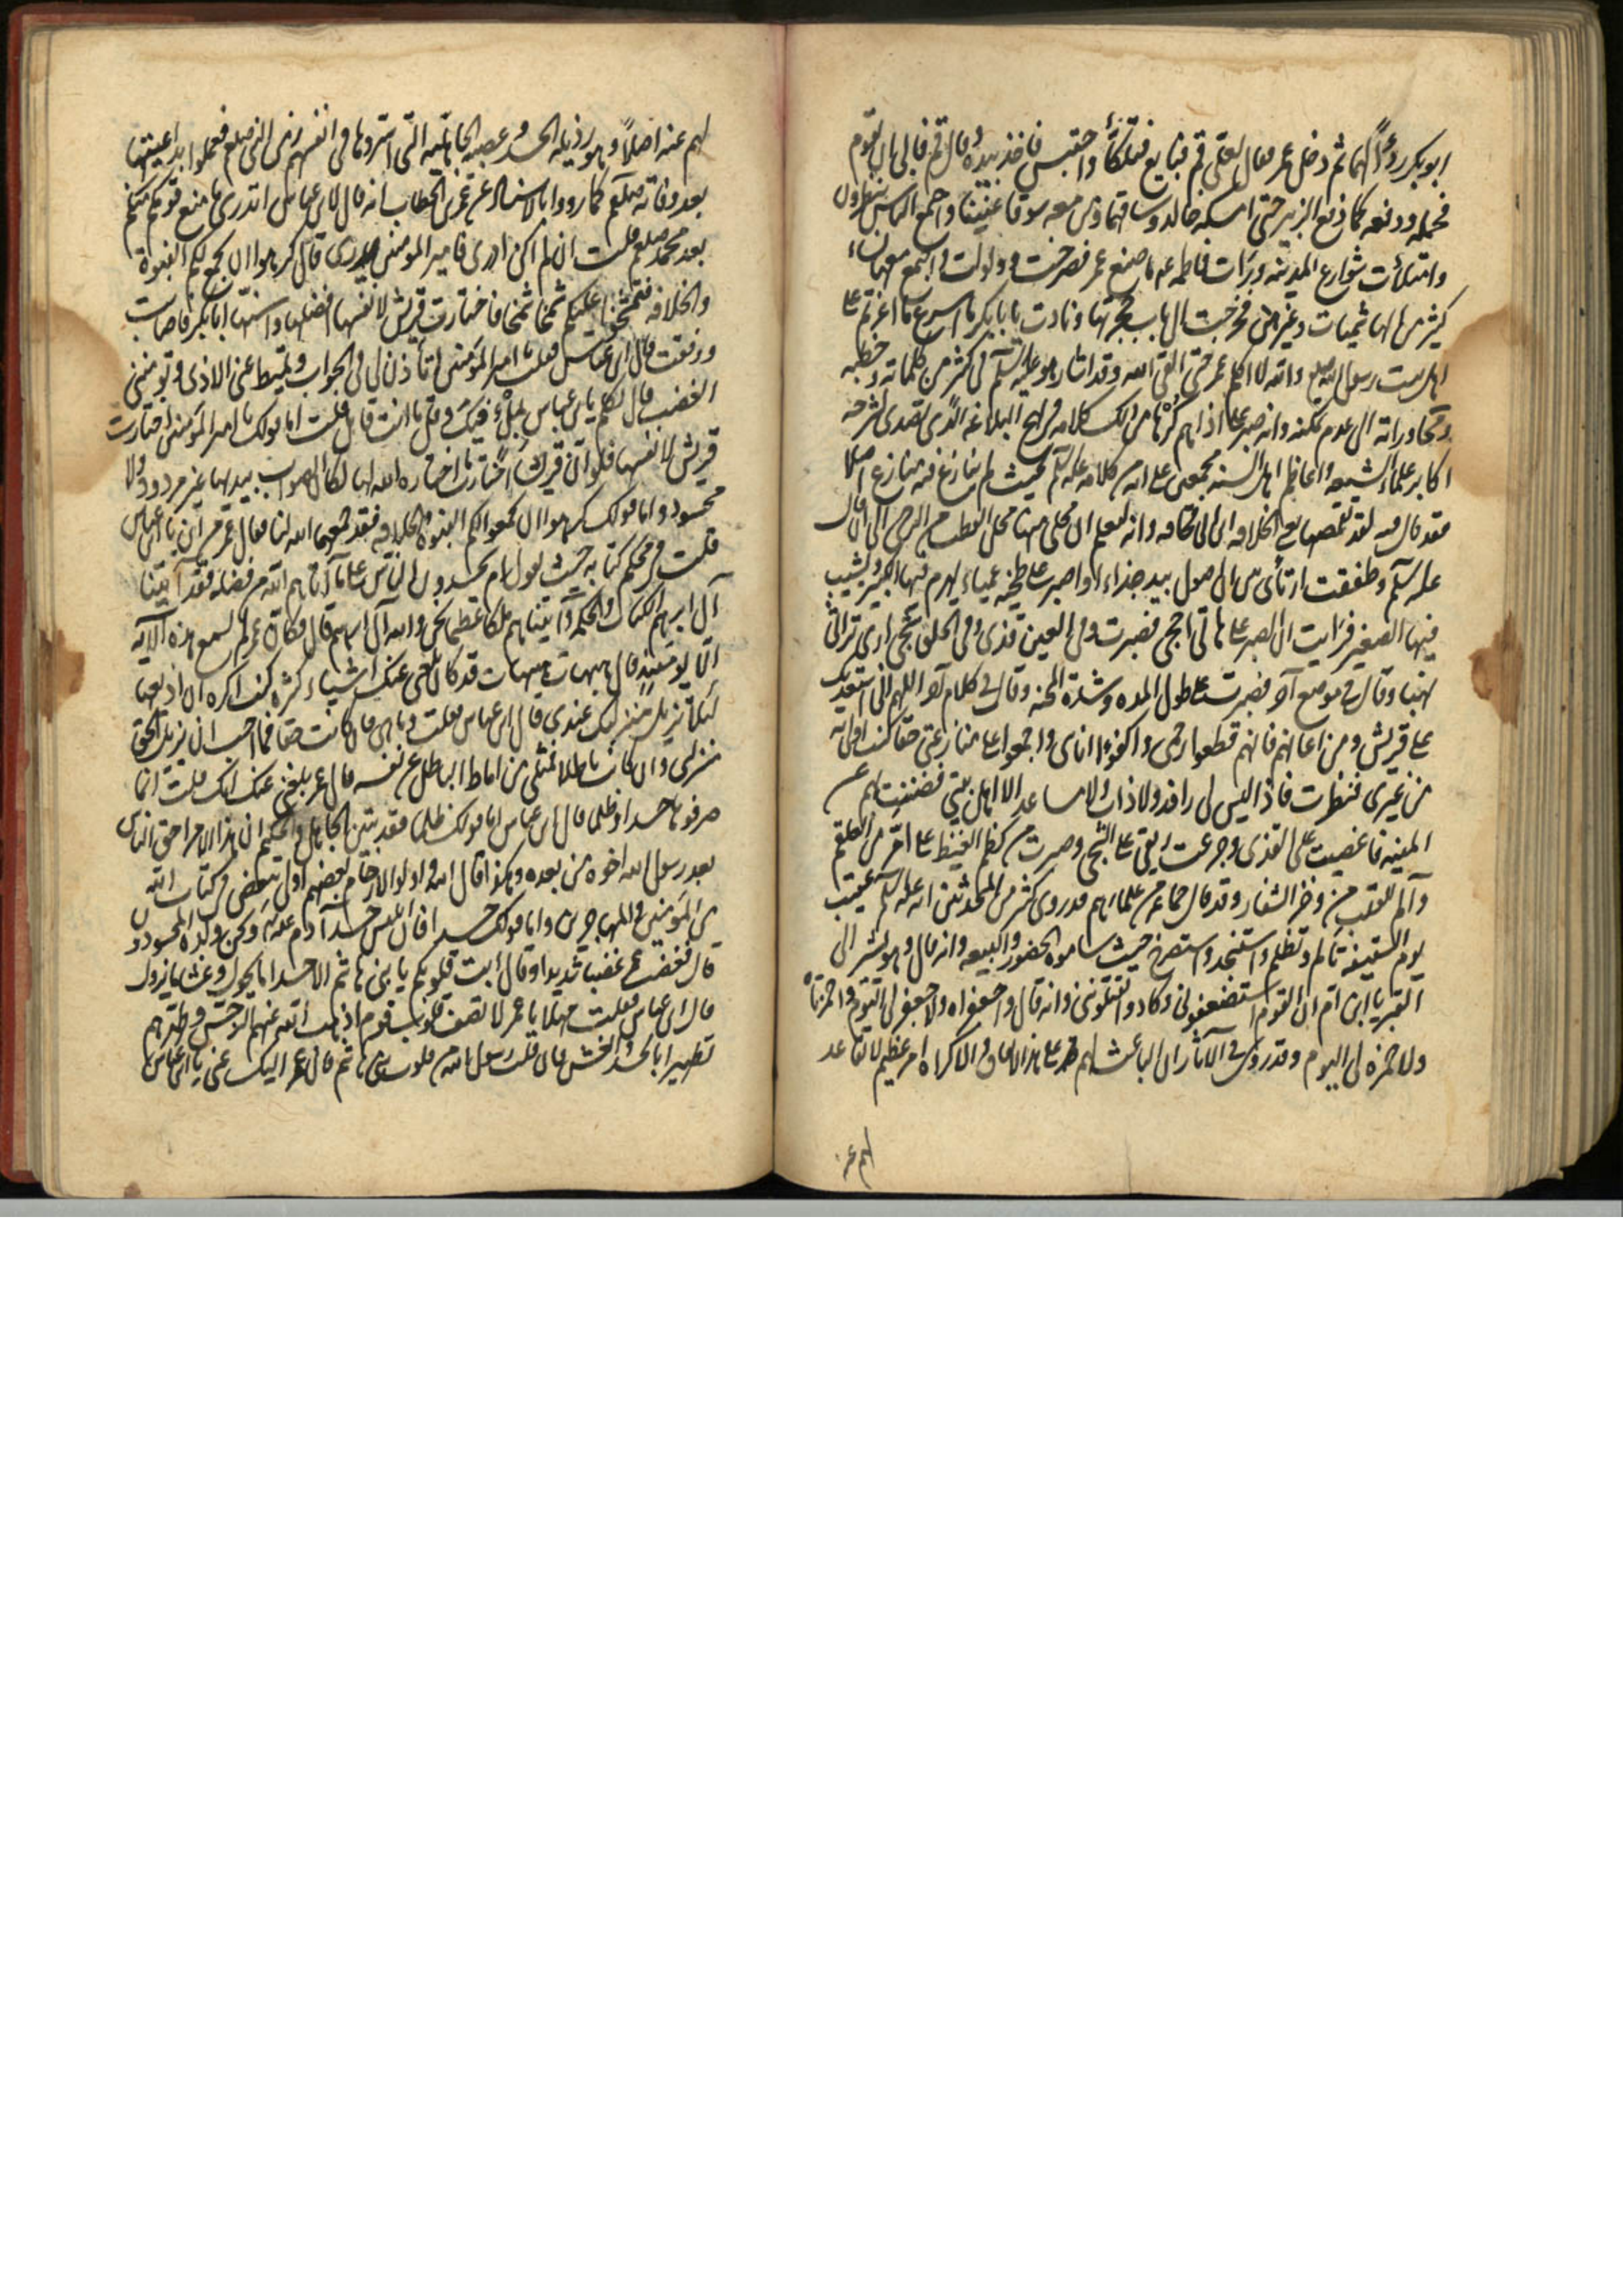 ابو بكر ردءاً لهما ثم دخل عمر فقال لعلي قم فبايع فتلكأ واحتبس فاخذ بيده وقال قم فابى ان يقوم
فحمله ودفعه كما دفع الزبير حتى امسكهما خالد وساقهما ومن معه سوقا عنيفا واجتمع الناس ينظرون
وامتلأت شوارع المدينة ورأت فاطمه ع ما صنع عمر فصرخت وولولت واجتمع معها نساء
كثير من الهاشميات وغيرهن فخرجت الى باب حجرتها ونادت يا ابابكر ما اسرع ما اغرتم على
اهل بيت رسول الله صلع والله لا اكلم عمر حتى القى الله وقد اشار هو عليه السلم في كثير من كلماته وخطبه
ومحاوراته الى عدم تمكنه وانه صبر على اذاهم كرها من ذلك كلامه في نهج البلاغه الذي تصدى لشرحه
اكابر علماء الشيعه واعاظم اهل السنه مجمعين على انه من كلامه عليه السلم بحيث لم ينازع فيه منازع اصلا
فقد قال فيه لقد تقمصها يعني الخلافه ابن ابي قحافه وانه ليعلم ان محلي منها محل القطب من الرحى الى ان قال
عليه السلم وطفقت ارتأى بين ان اصول بيد جذاء او اصبر على طخيه عمياء يهرم فيها الكبير ويشيب
فيها الصغير فرأيت ان الصبر على هاتا احجى فصبرت وفي العين قذى وفي الحلق شجى ارى تراثي
نهبا وقال في موضع آخر فصبرت على طول المده وشدة المحنه وقال في كلام آخر اللهم اني استعديك
على قريش ومن اعانهم فانهم قطعوا رحمي واكفوا انائى واجمعوا على منازعتي حقا كنت اولى به
من غيري فنظرت فاذا ليس لي رافد ولا ذاب ولا مساعد الا اهل بيتي فضننت بهم عن
المنيه فاغضيت على القذى وجرعت ريقي على الشجى وصبرت من كظم الغيظ على امر من العلقم
وآلم للقلب من وخز الشفار وقد قال جماعه من علمائهم قد روى كثير من المحدثين انه عليه السلم عقيب
يوم السقيفه تألم وتظلم واستنجد واستصرخ حيث ساموه الحضور والبيعه وانه قال وهو يشير الى
القبر يا ابن ام ان القوم استضعفوني وكادوا يقتلونني وانه قال وا جعفراه ولا جعفر لي اليوم وا حمزتاه
ولا حمزه لي اليوم وقد روى في الآثار ان الباعث لهم على هذا الالحاد والاكراه امر عظيم لا تقاعد
لهم عنه
لهم عنه اصلاً وهو رذيله الحسد وعصبيه الجاهليه التي استروها في انفسهم زمن النبي صلعم فعملوا بداعيتها
بعد وفاته صلعم كما رووا بالاسناد عن عمر بن الخطاب انه قال لابن عباس اتدري ما منع قومكم منكم
بعد محمد صلعم قلت ان لم اكن ادرى فامير المومنين يدرى قال كرهوا ان تجمع لكم النبوة
والخلافه فتشمخوا عليكم شمخا شمخا فاختارت قريش لانفسها افضلها واسنها ابا بكر فاصابت
ووفقت قال ابن عباس فقلت يا امير المؤمنين اتأذن لي في الجواب وتميط عني الاذى وتومنني
الغضب قال تكلم يا بن عباس بملء فيك وقل ما انت قايل قلت اما قولك يا امير المؤمنين اختارت
قريش لانفسها فلو ان قريشاً اختارت ما اختاره الله لها لكان الصواب بيدها غير مردود ولا
محسود واما قولك كرهوا ان تجمعوا لكم النبوة والخلافه فقد جمعها الله لنا فقال عمر من اين يا بن عباس
قلت في محكم كتابه حيث يقول ام يحسدون الناس على ما آتاهم الله من فضله فقد آتينا
آل ابرهيم الكتاب والحكمة وآتيناهم ملكا عظيما نحن والله آل ابرهيم قال فكان عمر لم يسمع هذه الآيه
الا يومئذ قال هيهات هيهات قد كان بلغني عنك اشياء كثيره كنت اكره ان اذيعها
لئلا تزيل منزلتك عندي قال ابن عباس فقلت وما هي فان كانت حقا فما احب ان يزيل الحق
منزلتي وان كانت باطلا فمثلي من اماط الباطل عن نفسه قال عمر بلغني عنك انك قلت انما
صرفوها حسدا وظلما قال ابن عباس اما قولك ظلما فقد تبين للجاهل والحكيم ان هذا الامر احق الناس
بعد رسول الله اخوه من بعده وهكذا قال الله واولوا الارحام بعضهم اولى ببعض في كتاب الله
من المؤمنين والمهاجرين واما قولك حسدا فان ابليس حسد آدم عليه السلم ونحن ولده المحسودون
قال فغضب عمر غضبا شديدا وقال أبت قلوبكم يا بني هاشم الا حسدا ما يحول وغشا ما يزول
قال ابن عباس فقلت مهلا يا عمر لا تصف قلوب قوم اذهب الله عنهم الرجس وطهرهم
تطهيرا بالحسد والغش فان قلب رسول الله من قلوب بني هاشم قال عمر اليك عني يا ابن عباس